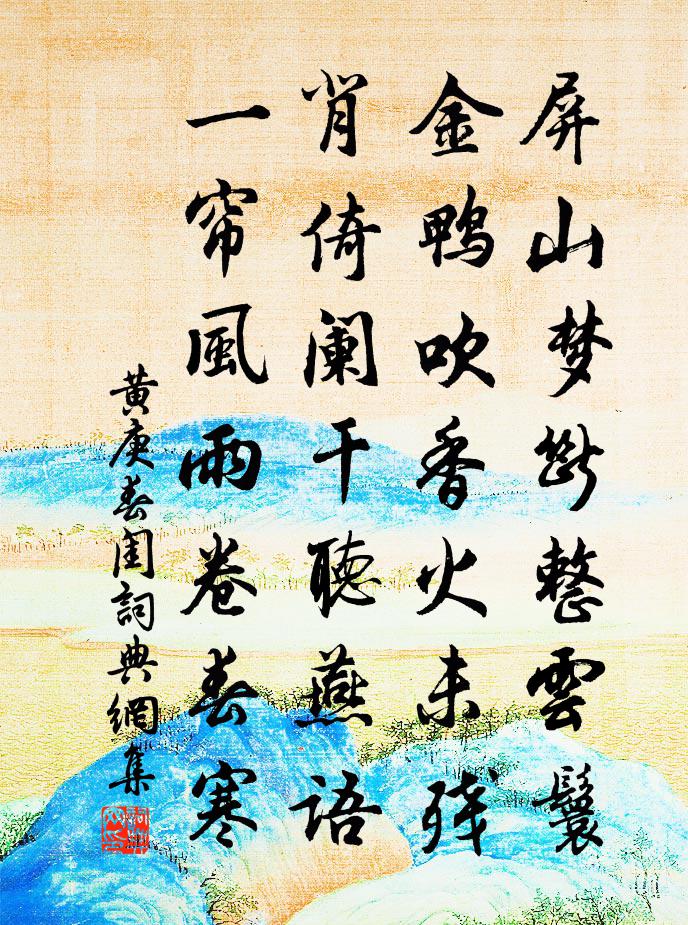 屏山梦断整雲鬟
金鴨吹香火未残
背倚阑干聽燕語
一帘風雨卷春寒
黄庚春闺詞典網集